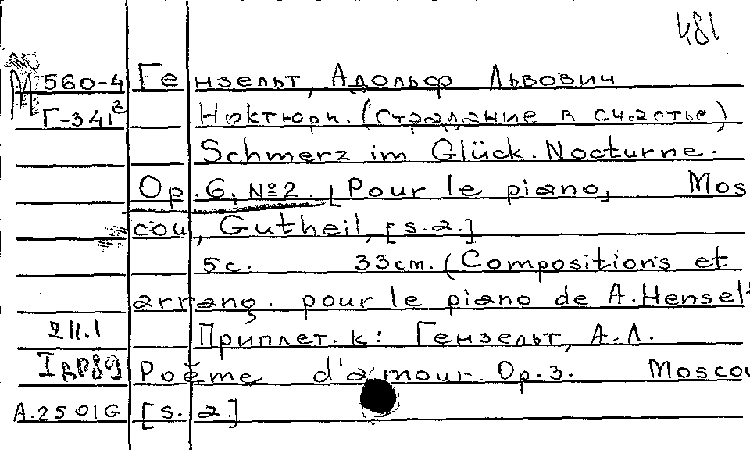 481
М 560-4 Гензельт, Адольф Львович
Г-341² Ноктюрн. (Страдание в счастье)
Schmerz im Glück. Nocturne.
Op. 6, №2. [Pour le piano,] Mos
cou, Gutheil, [s.a.]
5с. 33cm. (Compositions et
arrang. pour le piano de A. Henselt
211.1 Приплет. к: Гензельт, А.Л.
Poème d'amour Op. 3. Moscou
A.2501G [s.a.]